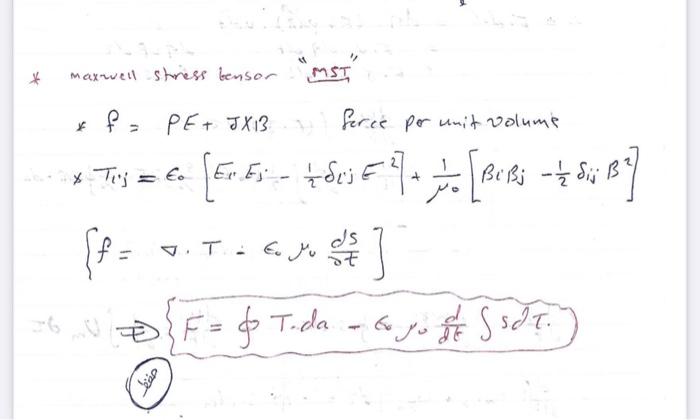 * maxwell stress tensor "MST"
* f = ρE + J×B force per unit volume
* Tij = ε₀ [Ei Ej - ½ δij E²] + 1/μ₀ [Bi Bj - ½ δij B²]
{f = ∇. T - ε₀ μ₀ ds/∂t ]
⇒ {F = ∮ T.da - ε₀ μ₀ d/dt ∫ s dτ.}
حفظ